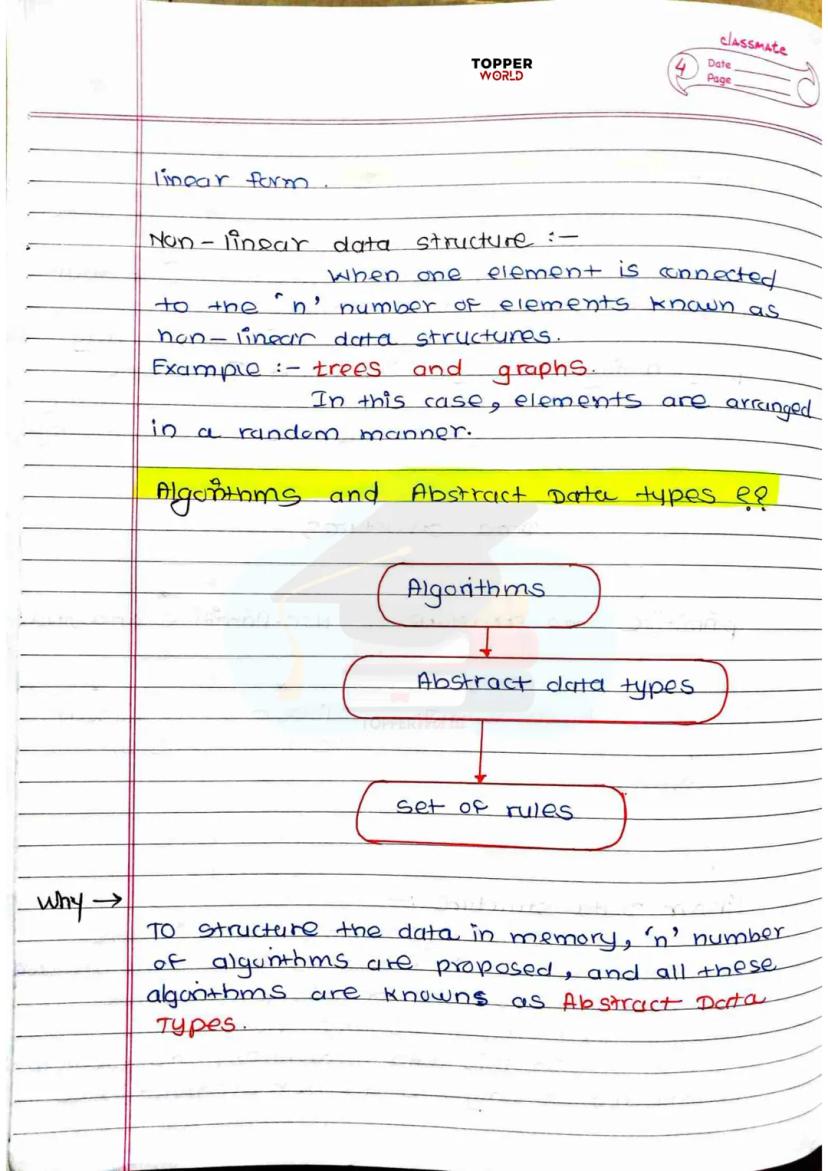 classmate
TOPPER
WORLD
4
Date
Page
linear form.
Non-linear data structure :-
When one element is connected
to the 'n' number of elements known as
non-linear data structures.
Example :- trees and graphs.
In this case, elements are arranged
in a random manner.
Algorithms and Abstract Data types ??
Algorithms
Abstract data types
set of rules
Why →
To structure the data in memory, 'n' number
of algorithms are proposed, and all these
algorithms are knowns as Abstract Data
Types.